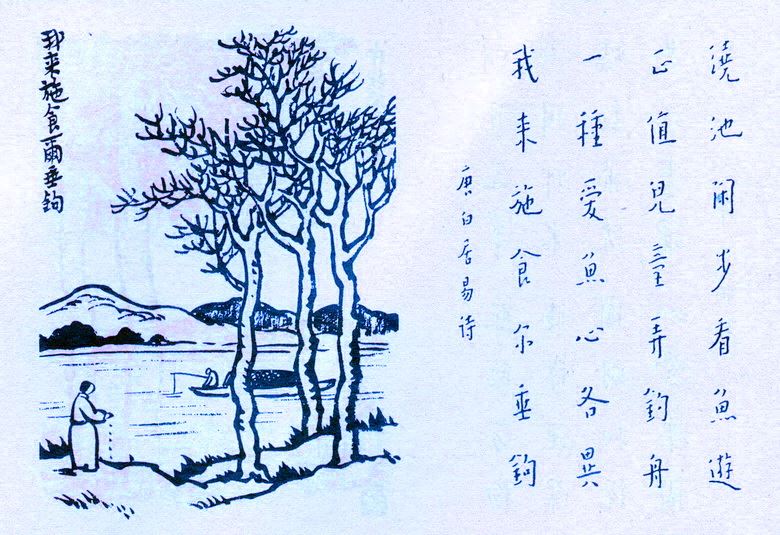 澆池閑步看魚遊
正值兒童弄釣舟
一種愛魚心各異
我来施食尔垂鉤
唐白居易詩
我来施食爾垂鉤